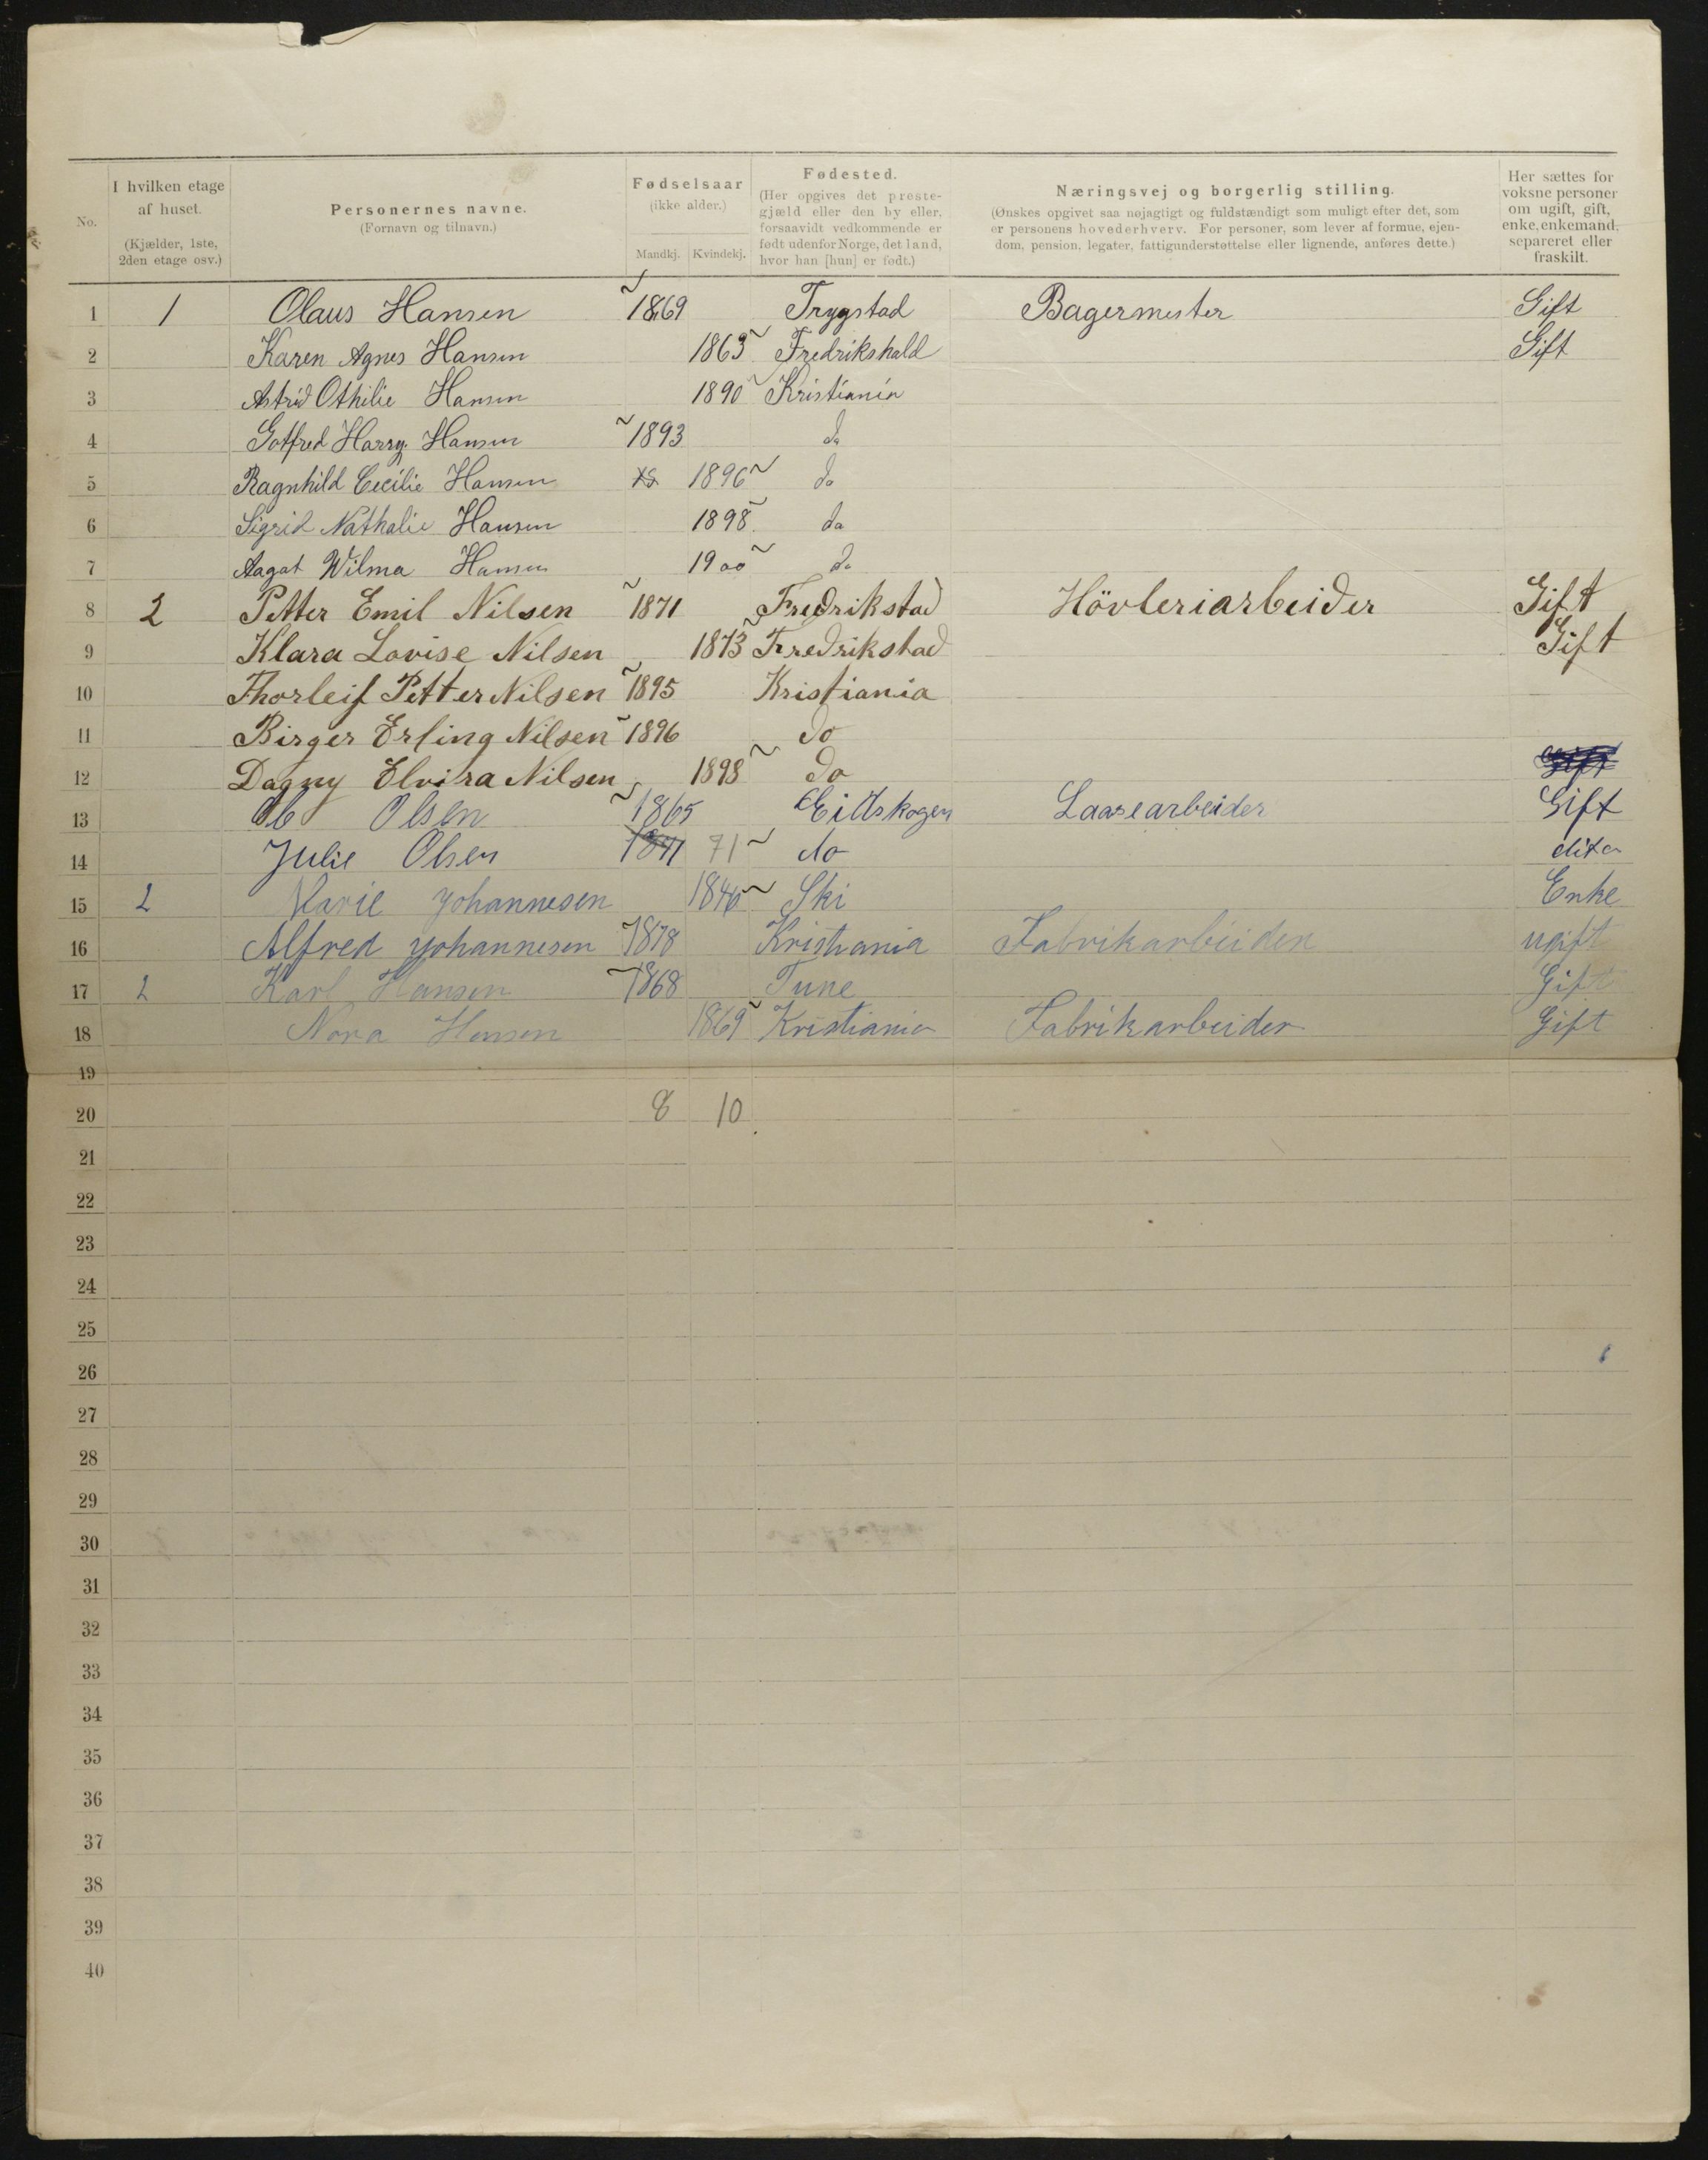 No.
I hvilken etage af huset. (Kjælder, 1ste, 2den etage osv.)
Personernes navne. (Fornavn og tilnavn.)
Fødselsaar (ikke alder.) Mandkj. Kvindekj.
Fødested. (Her opgives det prestegjæld eller den by eller, forsaavidt vedkommende er født udenfor Norge, det land, hvor han [hun] er født.)
Næringsvej og borgerlig stilling. (Ønskes opgivet saa nøjagtigt og fuldstændigt som muligt efter det, som er personens hovederhverv. For personer, som lever af formue, ejendom, pension, legater, fattigunderstøttelse eller lignende, anføres dette.)
Her sættes for voksne personer om ugift, gift, enke, enkemand, separeret eller fraskilt.
1 1 Olaus Hansen 1869 Trygstad Bagermester Gift
2 Karen Agnes Hansen 1863 Fredrikshald Gift
3 Astrid Othilie Hansen 1890 Kristiania
4 Gotfred Harry Hansen 1893 do
5 Ragnhild Cecilie Hansen 1896 do
6 Sigrid Nathalie Hansen 1898 do
7 Aagot Wilma Hansen 1900 do
8 2 Petter Emil Nilsen 1871 Fredrikstad Hövleriarbeider Gift
9 Klara Lovise Nilsen 1873 Fredrikstad Gift
10 Thorleif Petter Nilsen 1895 Kristiania
11 Birger Erling Nilsen 1896 do
12 Dagny Elvira Nilsen 1898 do Gift
13 Olsen 1865 Eidskogen Laasearbeider Gift
14 Julie Olsen 1871 71 do dito
15 2 Marie Johannesen 1846 Ski Enke
16 Alfred Johannesen 1878 Kristiania Fabrikarbeider ugift
17 2 Karl Hansen 1868 Tune Gift
18 Nora Hansen 1869 Kristiania Fabrikarbeider Gift
19
20 8 10
21
22
23
24
25
26
27
28
29
30
31
32
33
34
35
36
37
38
39
40